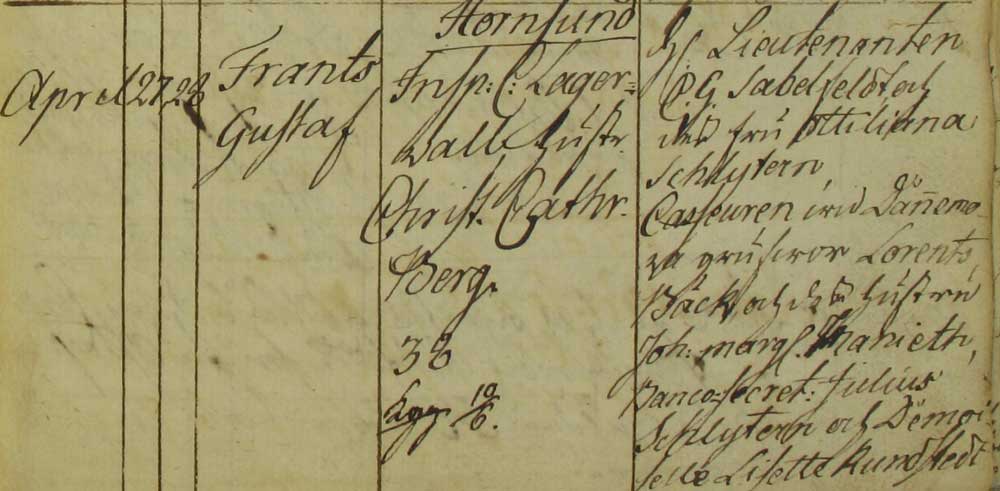 April 27 28
Frants
Gustaf
Hornsund
Insp: C: Lager=
vall, hustr.
Christ. Cathr.
Berg.
38
Kgg 10/6.
H Lieutenanten
P. G Sabelfeldt och
des fru Ottiliana
Schlytern,
Casseuren wid Dan̄emo-
ra grufwor Lorents
Bäck och des hustru
Joh: Marg. Manieth,
Banco-Secret: Julius
Schlytern och Demoi
selle Lisette Rundstedt